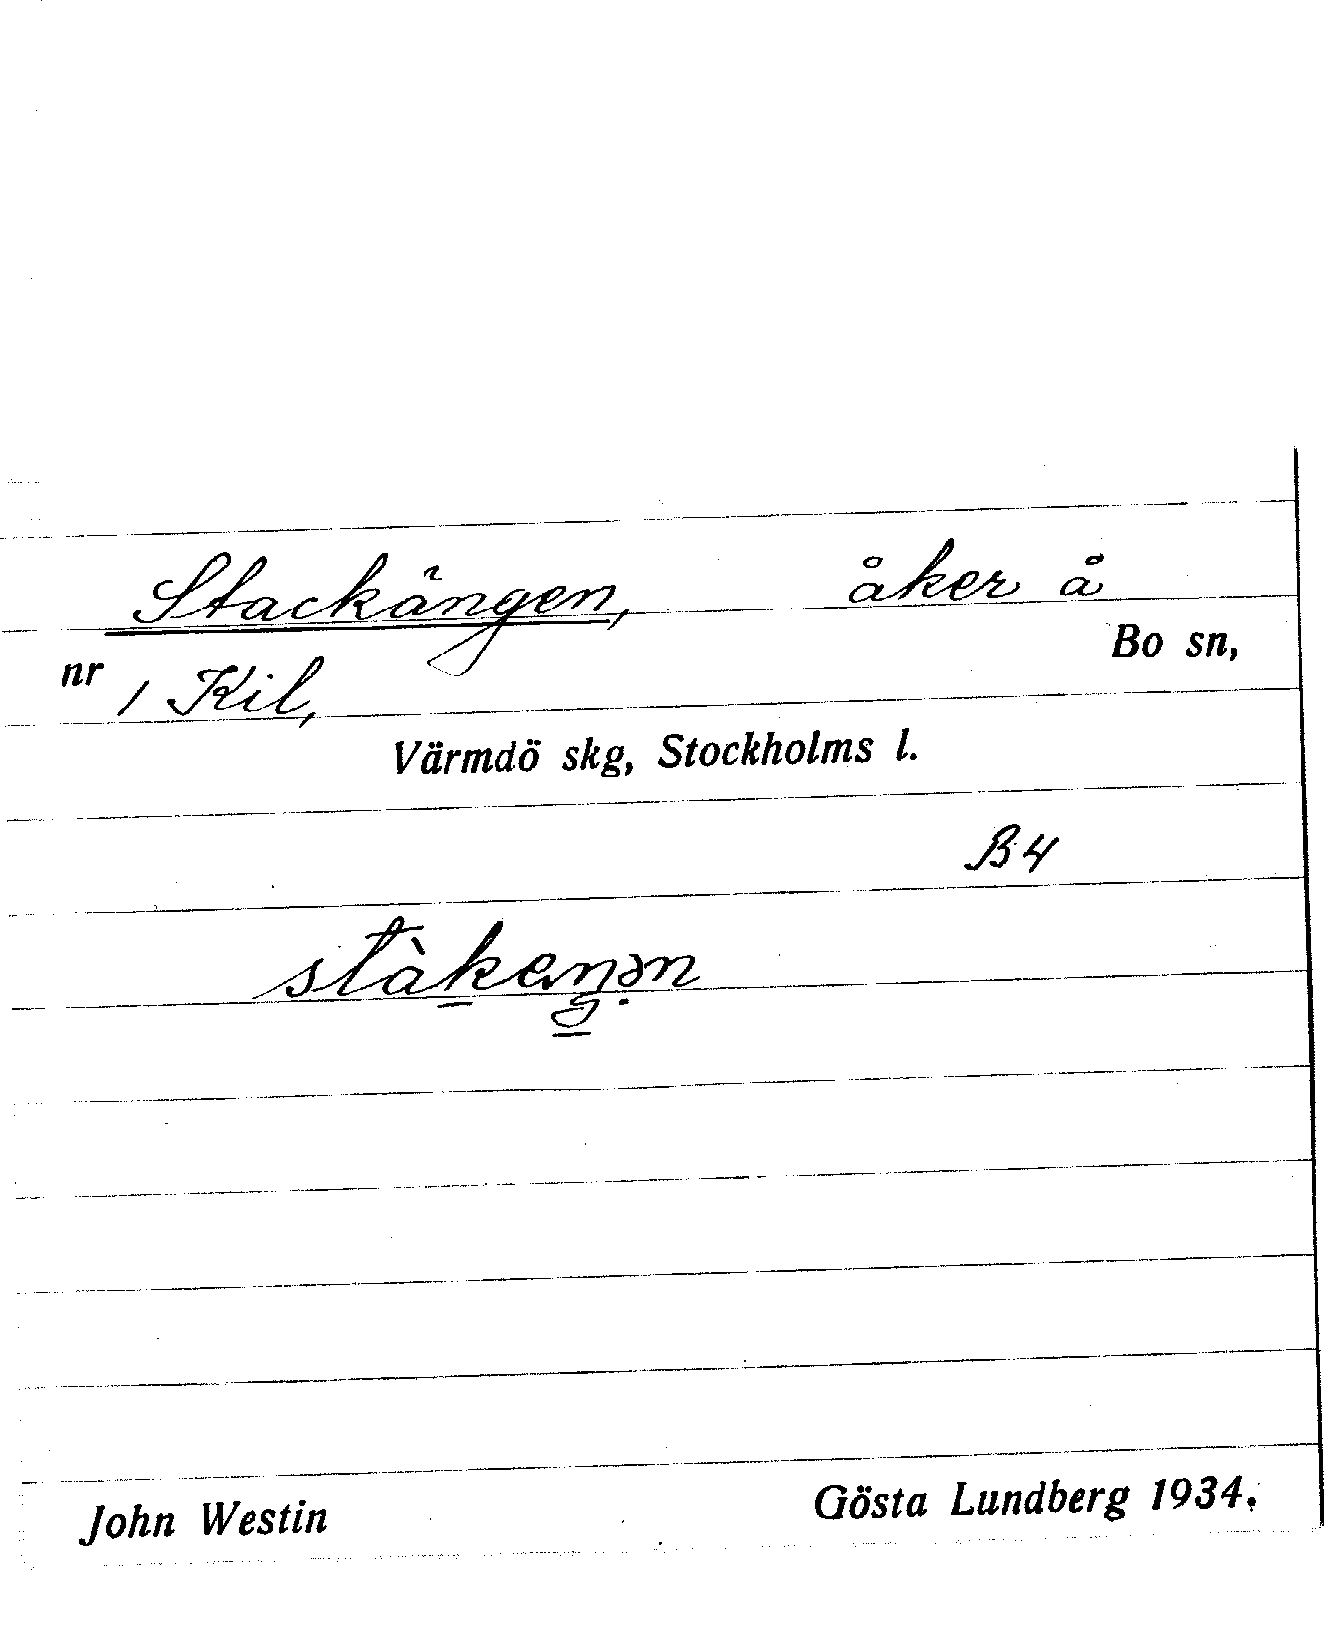 Stackängen, åker å
Bo sn,
nr 1 Kil,
Värmdö skg, Stockholms l.
B4
stàk̲eŋ̲ən
John Westin Gösta Lundberg 1934.